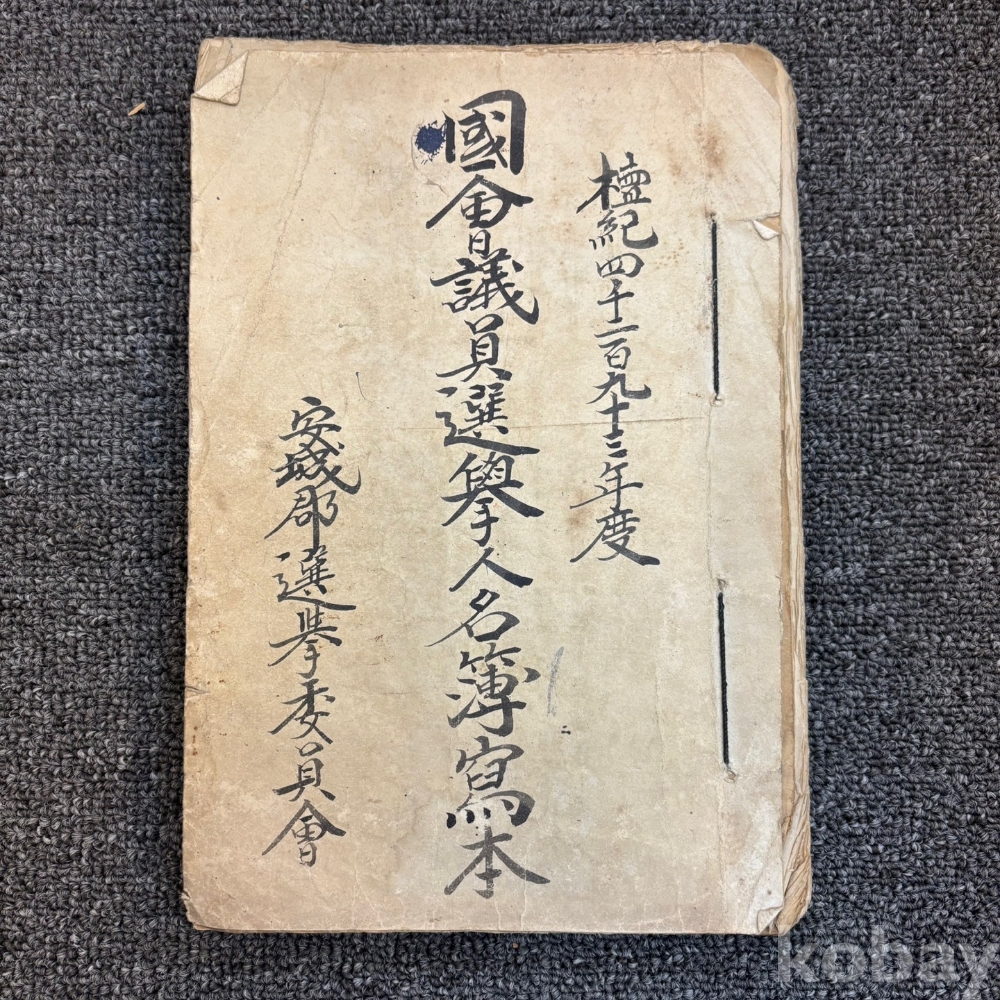 檀紀四千二百九十三年度
國會議員選擧人名簿寫本
安城郡選挙委員會
kobay